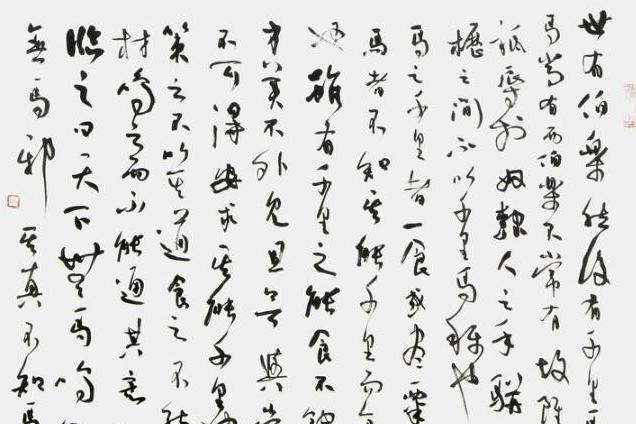 世有伯樂然後有千里馬
馬常有而伯樂不常有故雖
祇辱於奴隸人之手駢
櫪之間不以千里馬稱也
馬之千里者一食或盡粟
馬者不知其能千里而食
也雖有千里之能食不飽
才美不外見且與常
不可得安求其能千里也
策之不以其道食之不能
材鳴之而不能通其意
臨之曰天下無馬嗚
無馬邪其真不知馬